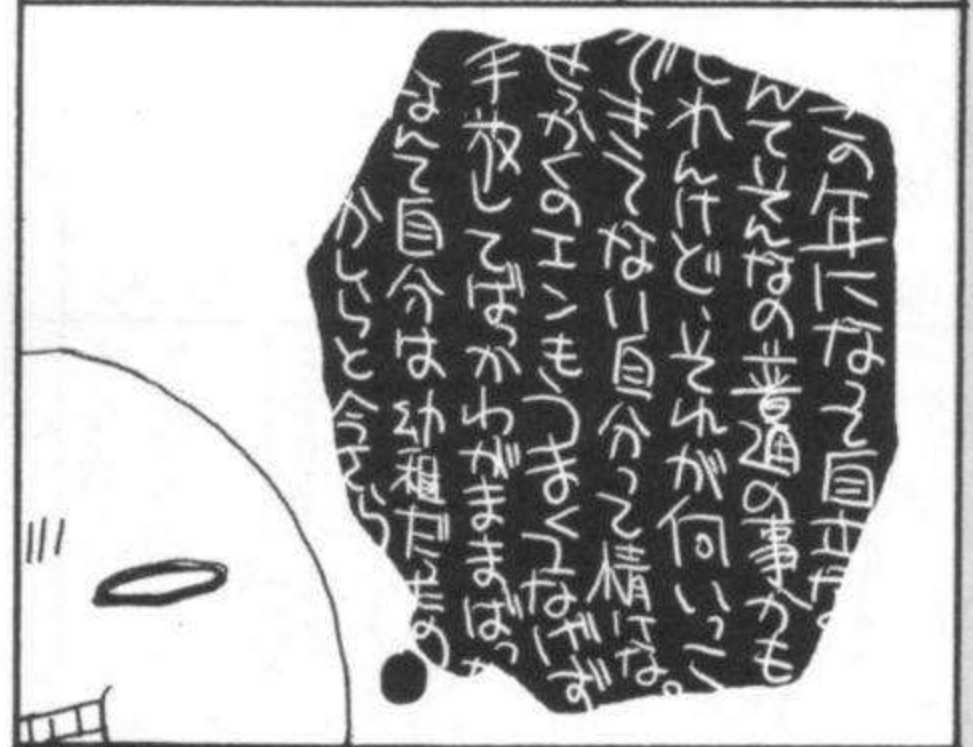 この年になって自立だ。
んていそんなの普通の事かも
しれんけど、それが何いっこ
できてない自分って情けな。
せっかくのエンもうまくつなげず
手放してばっかわがままばっか
なんて自分は幼稚だもの
かしらと今さら